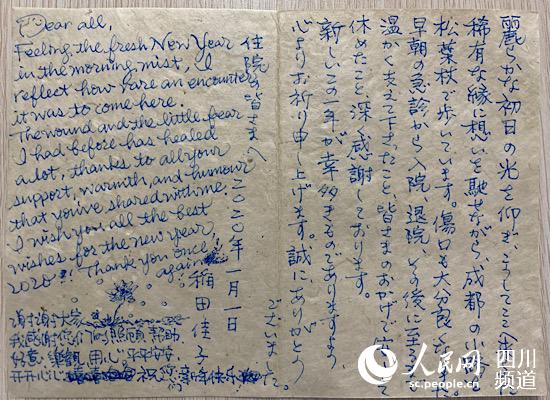 Dear all,
Feeling the fresh New Year
in the morning mist, I
reflect how rare an encounter
it was to come here.
The wound and the little fear
I had before has healed
a lot, thanks to all your
support, warmth, and humour
that you've shared with me.
I wish you all the best
wishes for the new year,
2020!! Thank you once
again
谢谢大家
我感谢你们的照顾 帮助
好意 樂観 用心 平平安安
开开心心 祝 新年快乐
麗らかな初日の光を仰ぎ、こうしてここへ
稀有な縁に想いを馳せながら、成都の小
松葉杖で歩いています。傷口も大分良く
早朝の急診から入院、退院、その後に至る
温かく支えて下さったこと、皆さまのおかげで
休めたこと、深く感謝しております。
新しいこの一年が幸多きものでありますよう
心よりお祈り申し上げます。誠にありがとう
ございました。
住院の皆さまへ
二〇二〇年一月一日
稲田佳子
人民网 四川频道
sc.people.com.cn